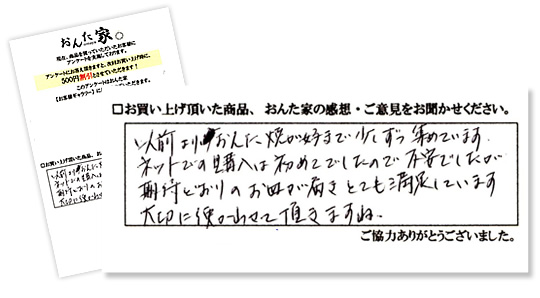 おんた家。
現在、商品を買っていただいたお客様に
アンケートを実施しております。
アンケートにお答え頂きますと、次回お買い上げ時に、
500円割引とさせていただきます！
このアンケートはおんた家
【お客様ギャラリー】に
□お買い上げ頂いた商品、お
以前よりおんた
ネットでの購
期待どおりのお
大切に使
□お買い上げ頂いた商品、おんた家の感想・ご意見をお聞かせください。
以前よりおんた焼が好きで少しずつ集めています。
ネットでの購入は初めてでしたので不安でしたが
期待どおりのお皿が届きとても満足しています
大切に使わせて頂きますね。
ご協力ありがとうございました。